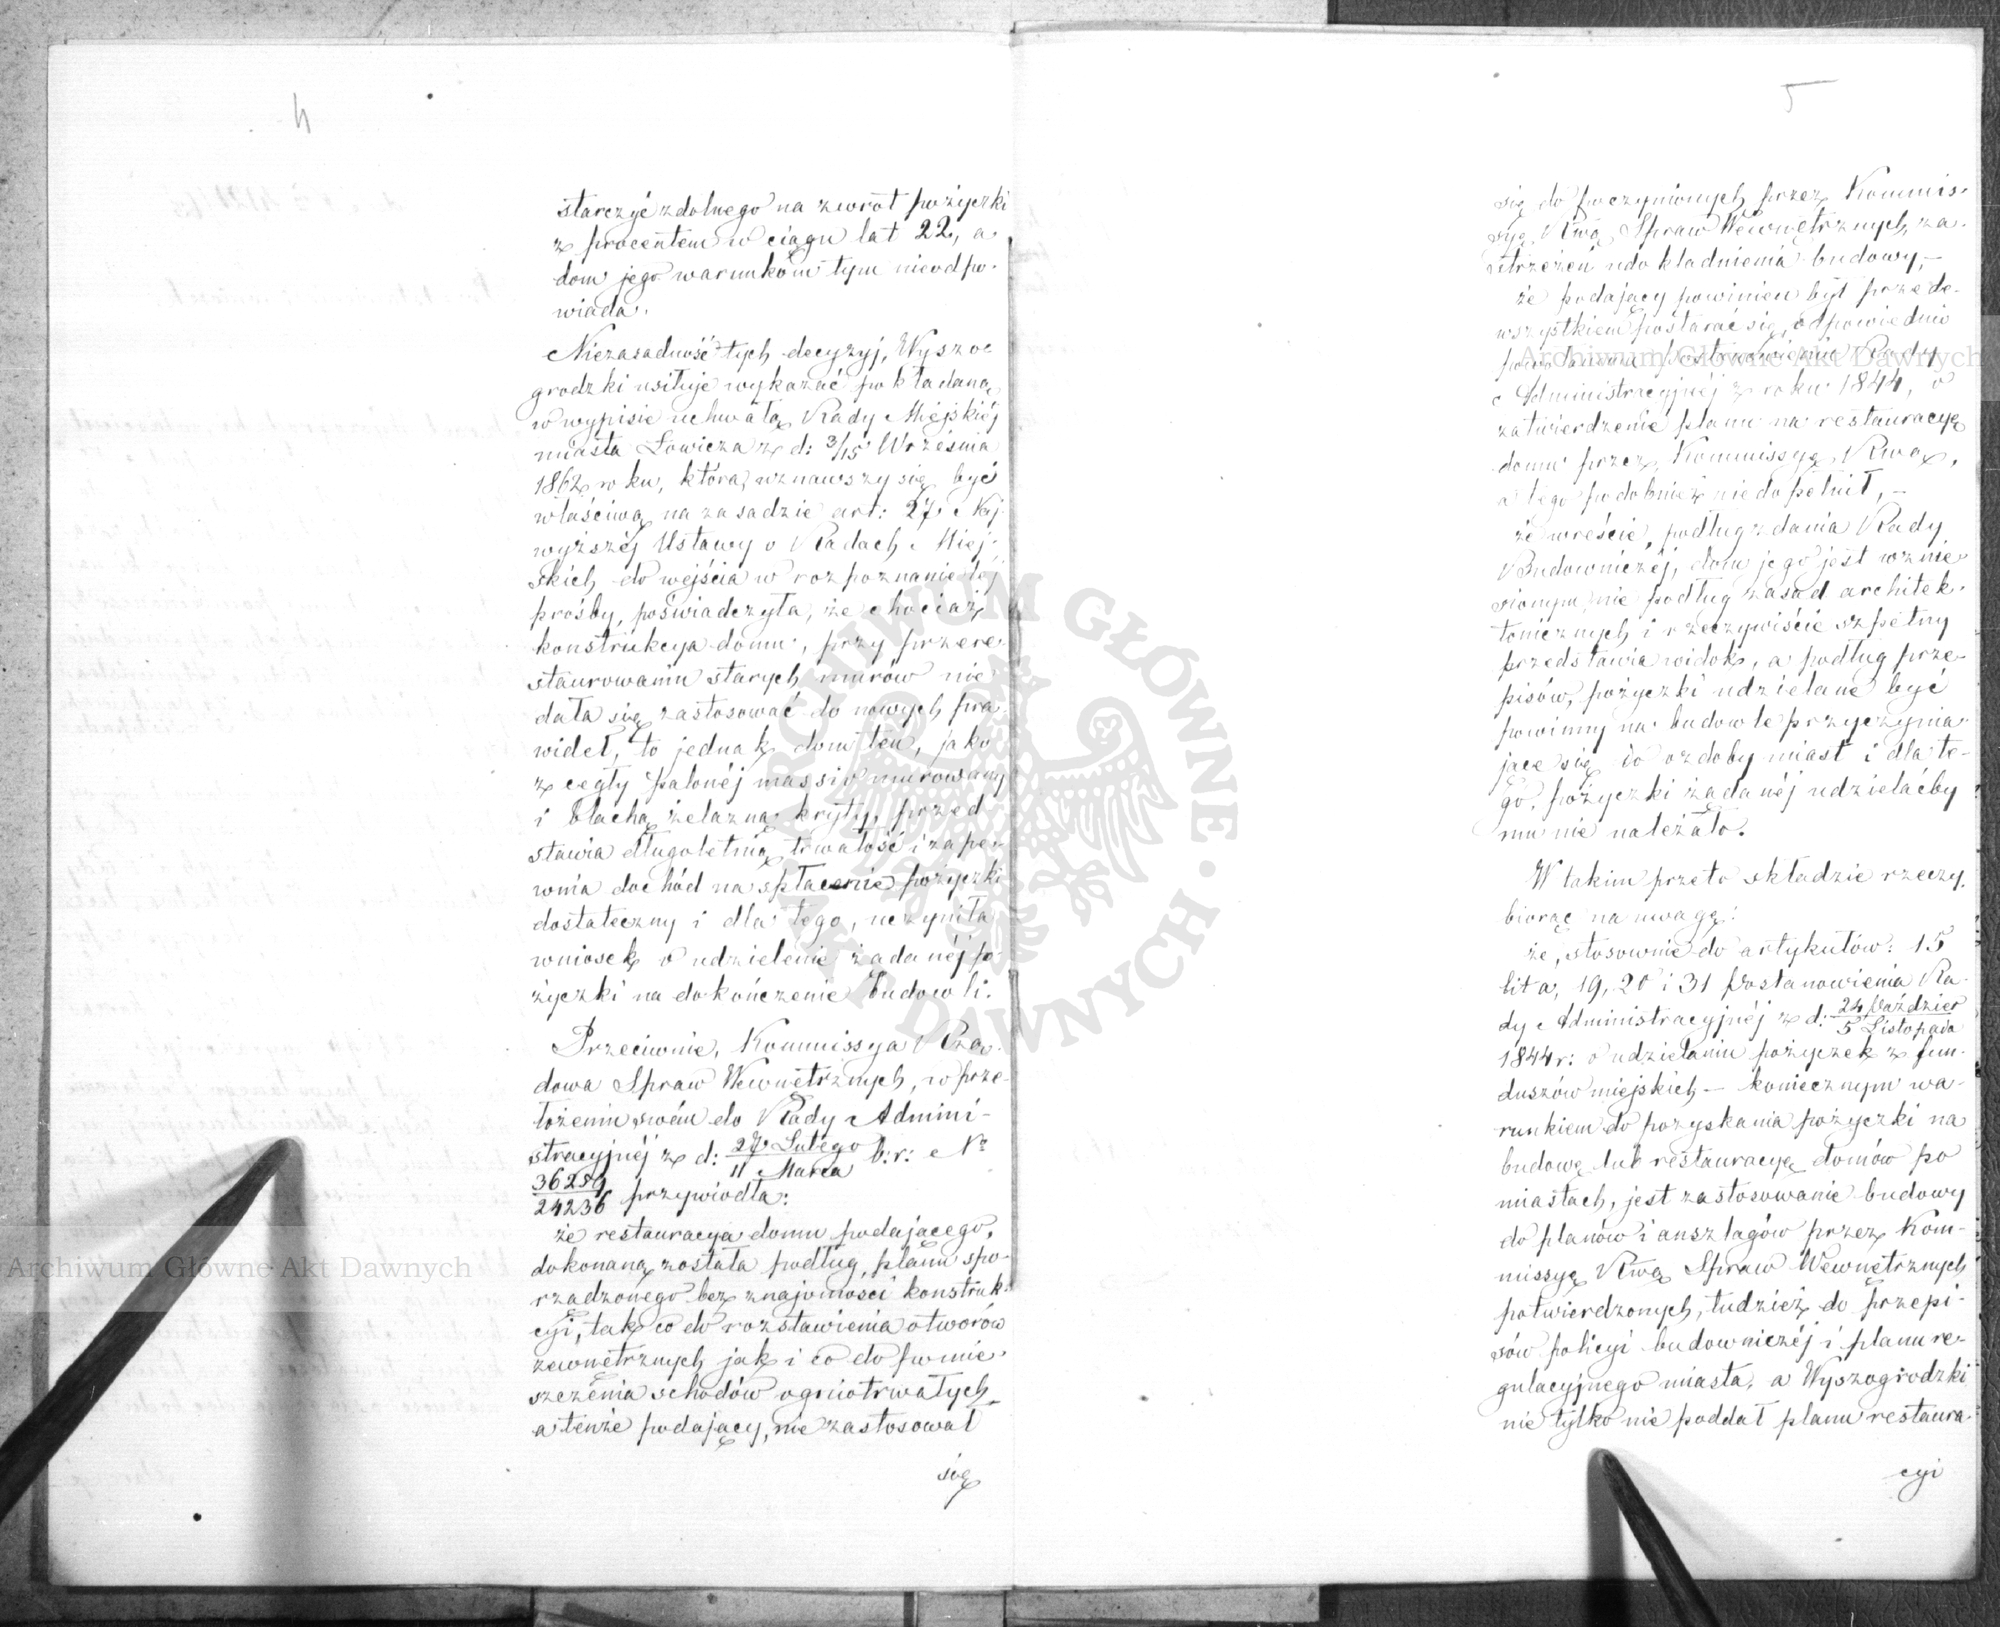 4
starczyć zdolnego na zwrot pożyczki
z procentem w ciągu lat 22, a
dom jego warunkom tym nieodpo-
wiada.
Niezasadność tych decyzyj, Wyszo-
grodzki usiłuje wykazać pokładaną
w wypisie uchwałą Rady Miejskiej
miasta Łowicza z d: 3/15 Września
1862 roku, która, uznawszy się być
właściwą na zasadzie art: 27. Naj-
wyższéj Ustawy o Radach Miej-
skich do wejścia w rozpoznanie téj
prośby, poświadczyła, że chociaż
konstrukcya domu, przy przere-
staurowaniu starych murów nie
dała się zastosować do nowych pra-
wideł, to jednak dom ten, jako
z cegły palonéj massiv murowany
i blachą żelazną kryty, przed-
stawia długoletnią trwałość i zape-
wnia dochód na spłacenie pożyczki
dostateczny i dla tego, uczyniła
wniosek o udzielenie żądanéj po-
życzki na dokończenie budowli.
Przeciwnie, Kommissya Rzą-
dowa Spraw Wewnętrznych, w prze-
łożeniu swém do Rady Admini-
stracyjnéj z d: 27 Lutego / 11 Marca b: r: No
36259/24236 przywiodła:
że restauracya domu podającego,
dokonaną została podług planu spo-
rządzonego bez znajomości konstruk-
cyi, tak co do rozstawienia otworów
zewnętrznych jak i co do pomie-
szczenia schodów ogniotrwałych,
a tenże podający, nie zastosował
się
5
się do poczynionych przez Kommis-
syę Rwą Spraw Wewnętrznych, za-
strzeżeń udokładnienia budowy, –
że podający powinien był prze de-
wszystkiem postarać się, odpowiednio
powołanemu postanowieniu Rady
Administracyjnéj z roku 1844, o
zatwierdzenie planu na restauracyę
domu przez Kommissyę Rwą,
a tego podobnież nie dopełnił, –
że wreście, podług zdania Rady
Budowniczéj, dom jego jest wznie-
sionym nie podług zasad architek-
tonicznych i rzeczywiście szpetny
przedstawia widok, a podług prze-
pisów, pożyczki udzielane być
powinny na budowle przyczynia-
jące się do ozdoby miast i dla te-
go, pożyczki żądanéj udzielaćby
mu nie należało.
W takim przeto składzie rzeczy,
biorąc na uwagę:
że, stosownie do artykułów: 15
lit a, 19, 20 i 31 Postanowienia Ra-
dy Administracyjnéj z d: 24 Paździer / 5 Listopada
1844 r: o udzielaniu pożyczek z fun-
duszów miejskich – koniecznym wa-
runkiem do pozyskania pożyczki na
budowę lub restauracyę domów po
miastach, jest zastosowanie budowy
do planów i anszlagów przez Kom-
missyę Rwą Spraw Wewnętrznych
potwierdzonych, tudzież do przepi-
sów policyi budowniczéj i planu re-
gulacyjnego miasta, a Wyszogrodzki
nie tylko nie poddał planu restaura-
cyi
ARCHIWUM GŁÓWNE AKT DAWNYCH
Archiwum Główne Akt Dawnych
Archiwum Główne Akt Dawnych